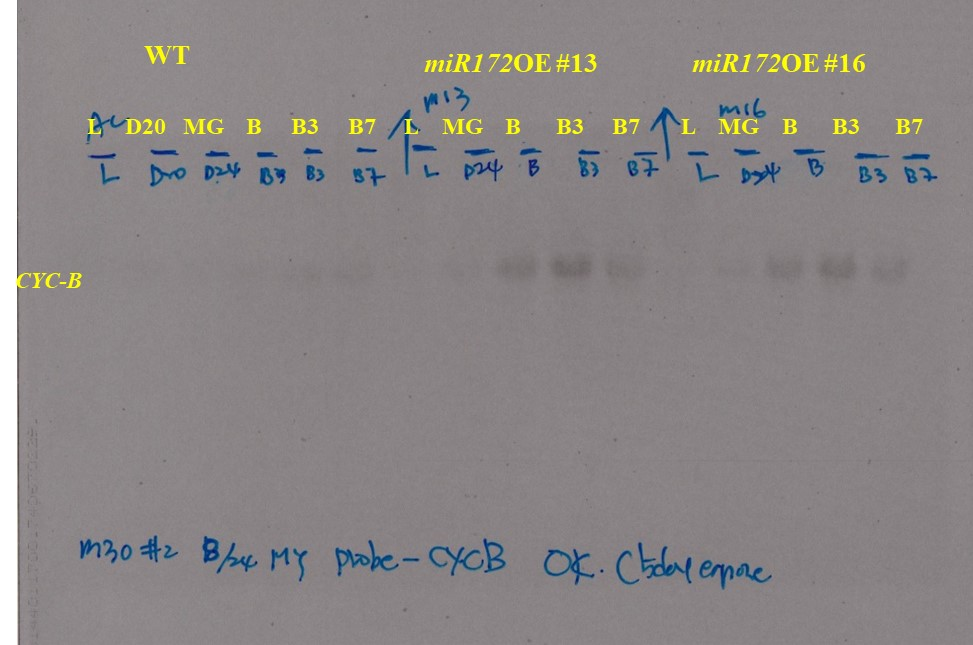 WT miR172OE #13 miR172OE #16
AC m13 m16
L D20 MG B B3 B7 L MG B B3 B7 L MG B B3 B7
L D20 D24 B3 B3 B7 L D24 B B3 B7 L D24 B B3 B7
CYC-B
m30 #2 8/24 MY probe - CYCB OK. (5day expose